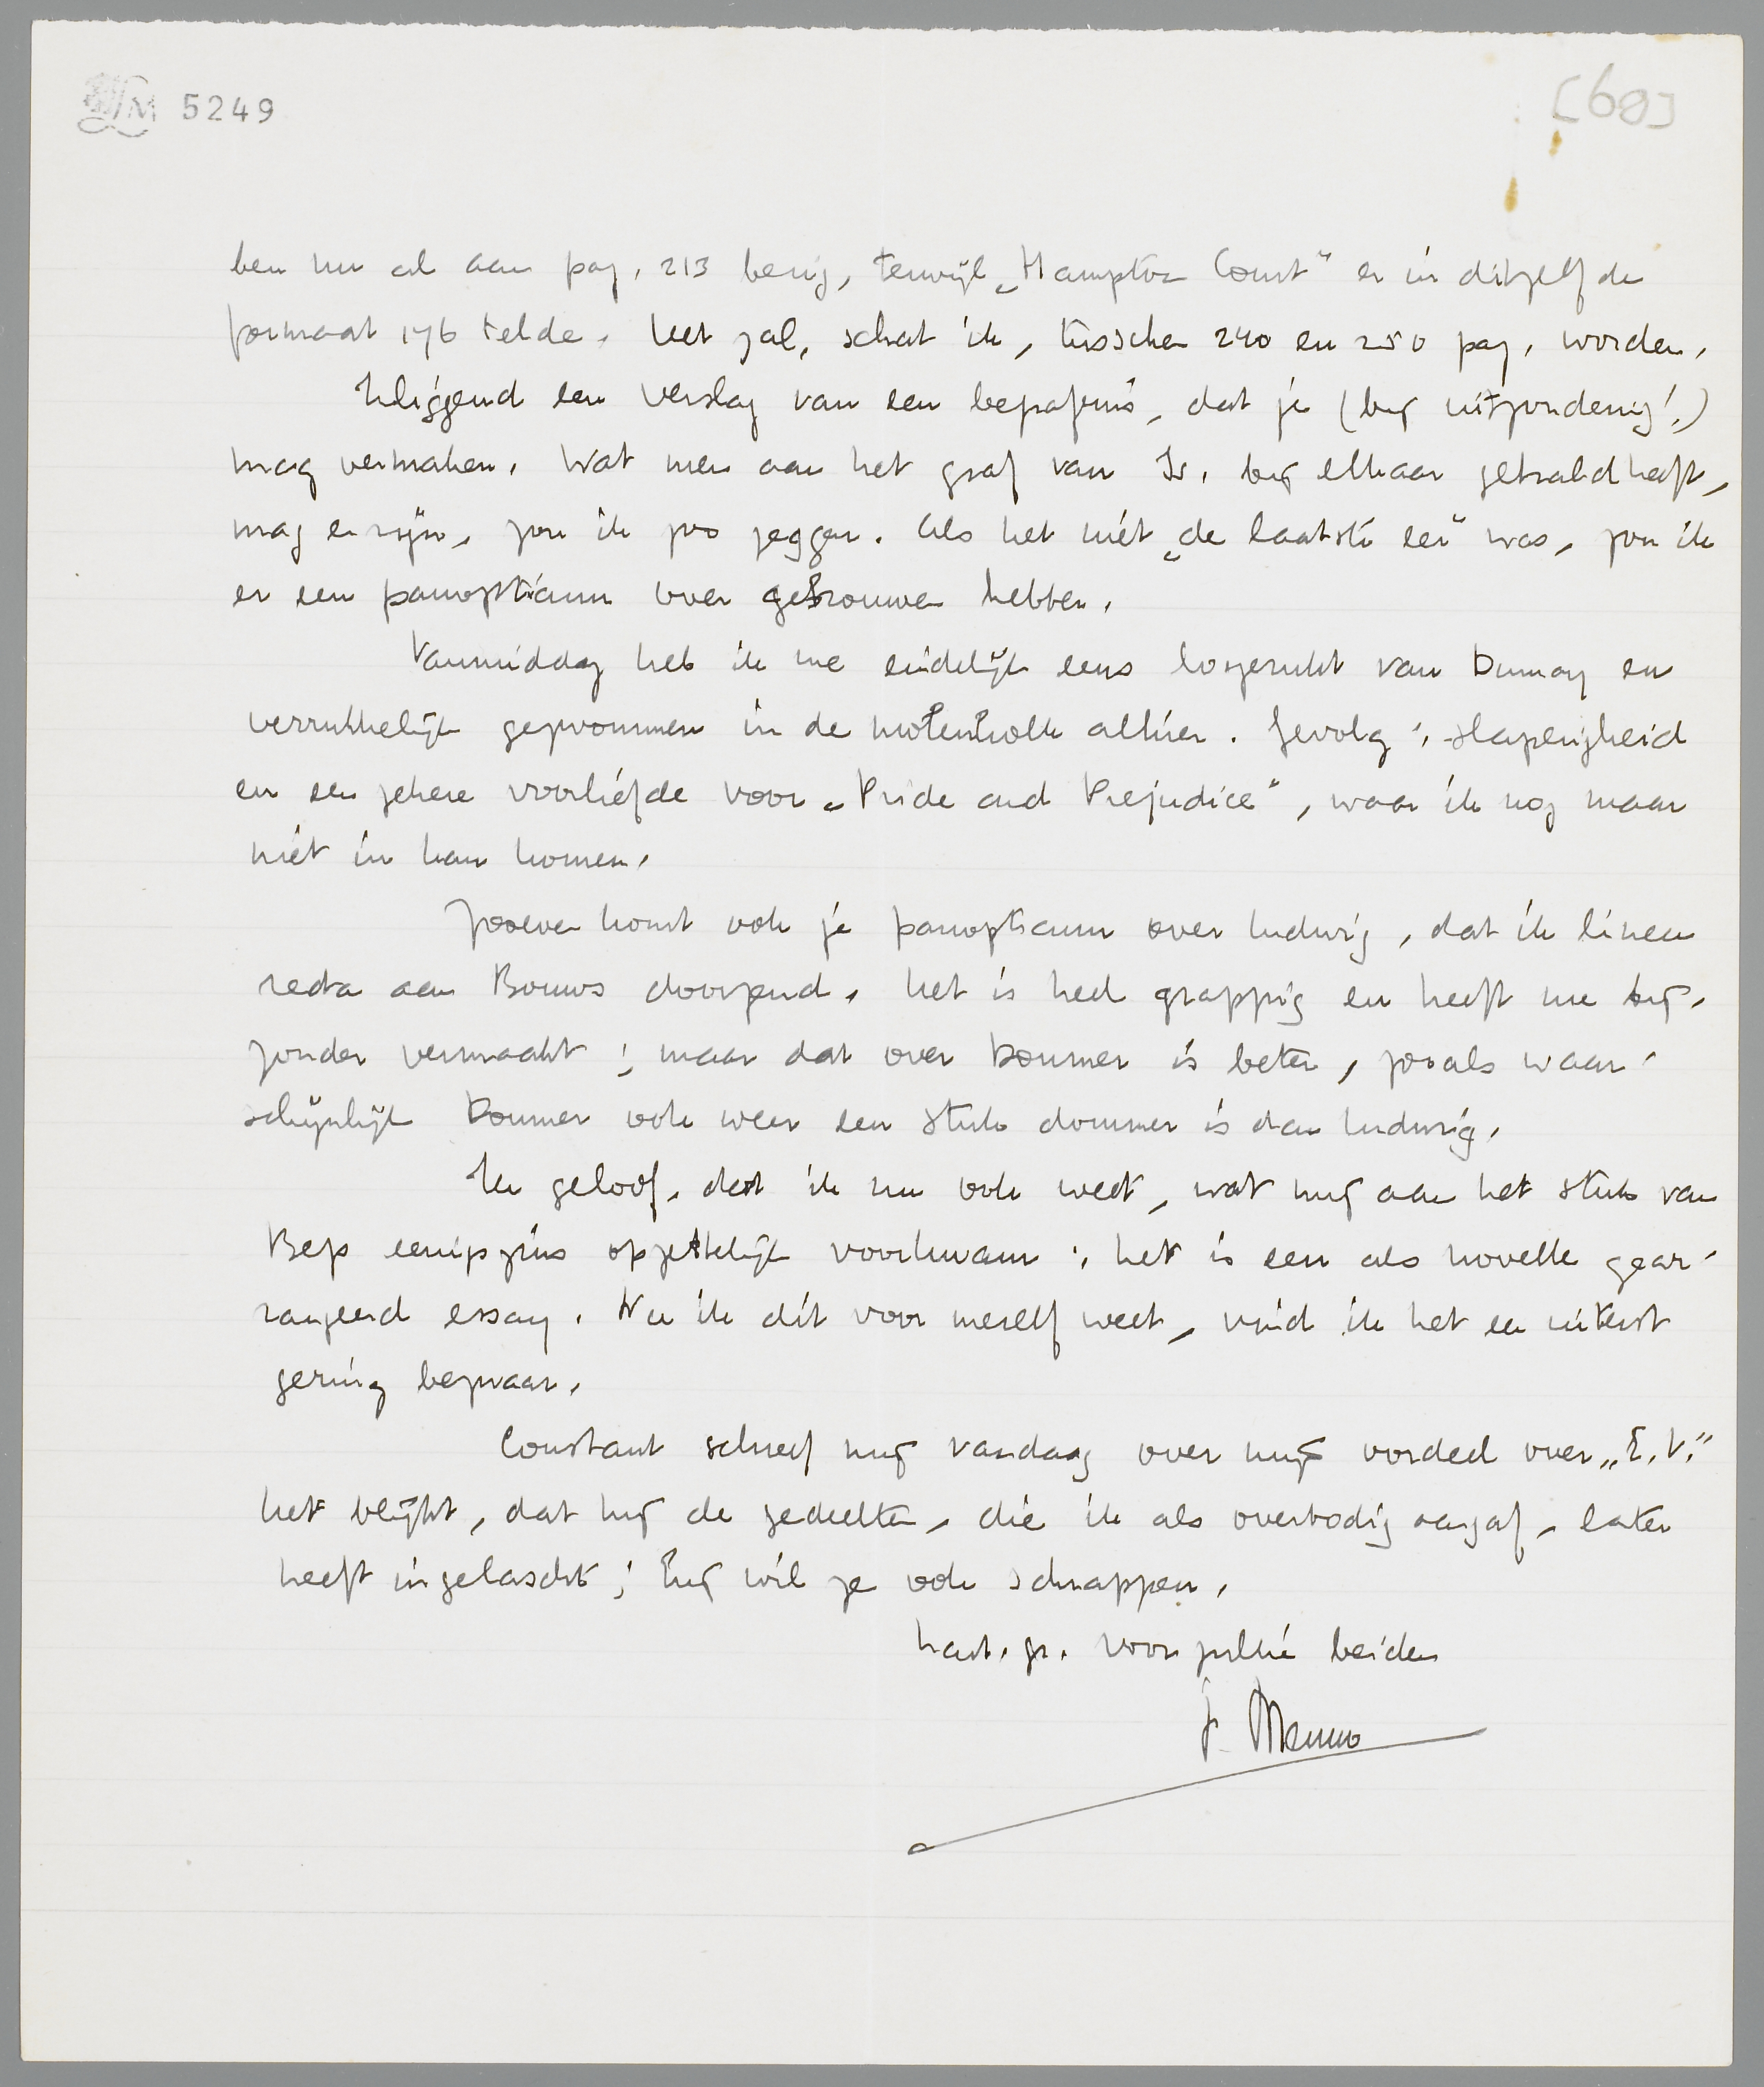 5249
[60]
ben nu al aan pag. 213 bezig, terwijl „Hampton Court" er in ditzelfde
formaat 176 telde. Het zal, schat ik, tusschen 240 en 250 pag. worden.
Inliggend een verslag van een begrafenis, dat je (bij uitzondering!)
mag vermaken. Wat men aan het graf van Is. bij elkaar gebrald heeft,
mag er zijn, zou ik zoo zeggen. Als het niet „de laatste eer" was, zou ik
er een panopticum over gebrouwen hebben.
Vanmiddag heb ik me eindelijk eens losgerukt van Dumay en
verrukkelijk gezwommen in de alhier. Gevolg: slaperigheid
en een zekere voorliefde voor „Pride and Prejudice", waar ik nog maar
niet in kan komen.
Zooeven komt ook je panopticum over Ludwig, dat ik linea
recta aan Bouws doorzend. Het is heel grappig en heeft me bij-
zonder vermaakt; maar dat over Doumer is beter, zooals waar-
schijnlijk Doumer ook weer een stuk dommer is dan Ludwig.
Ik geloof, dat ik nu ook weet, wat mij aan het stuk van
Bep eenigszins opzettelijk voorkwam: het is een als novelle gear-
rangeerd essay. Nu ik dit voor mezelf weet, vind ik het een uiterst
gering bezwaar.
Constant schreef mij vandaag over mijn oordeel over „E.V."
Het blijkt, dat hij de gedeelten, die ik als overbodig aangaf, later
heeft ingelascht; hij wil ze ook schrappen.
Hart. gr. voor jullie beiden
je Menno